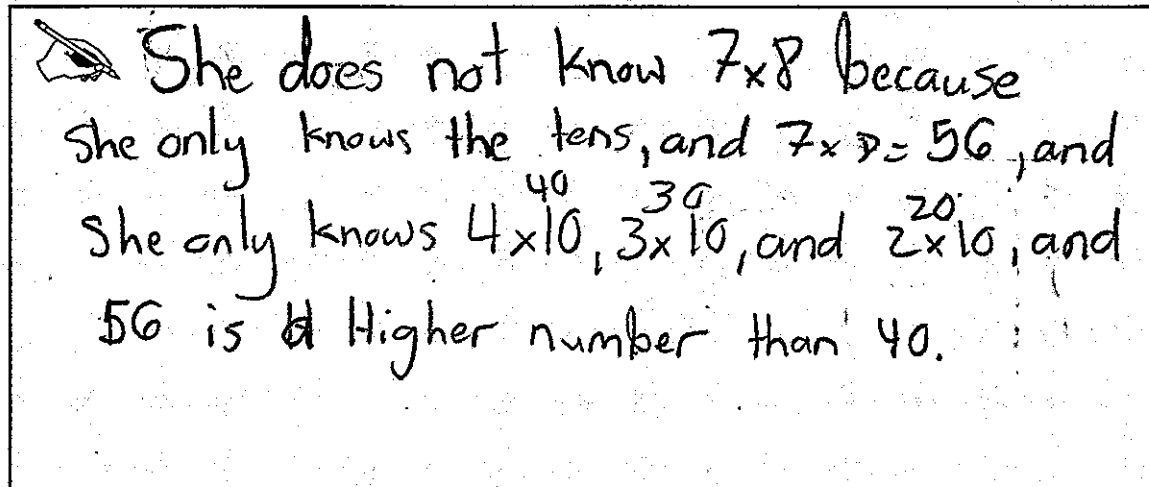 She does not know 7x8 because
she only knows the tens, and 7x8=56, and
40 30 20
she only knows 4x10, 3x10, and 2x10, and
56 is Higher number than 40.